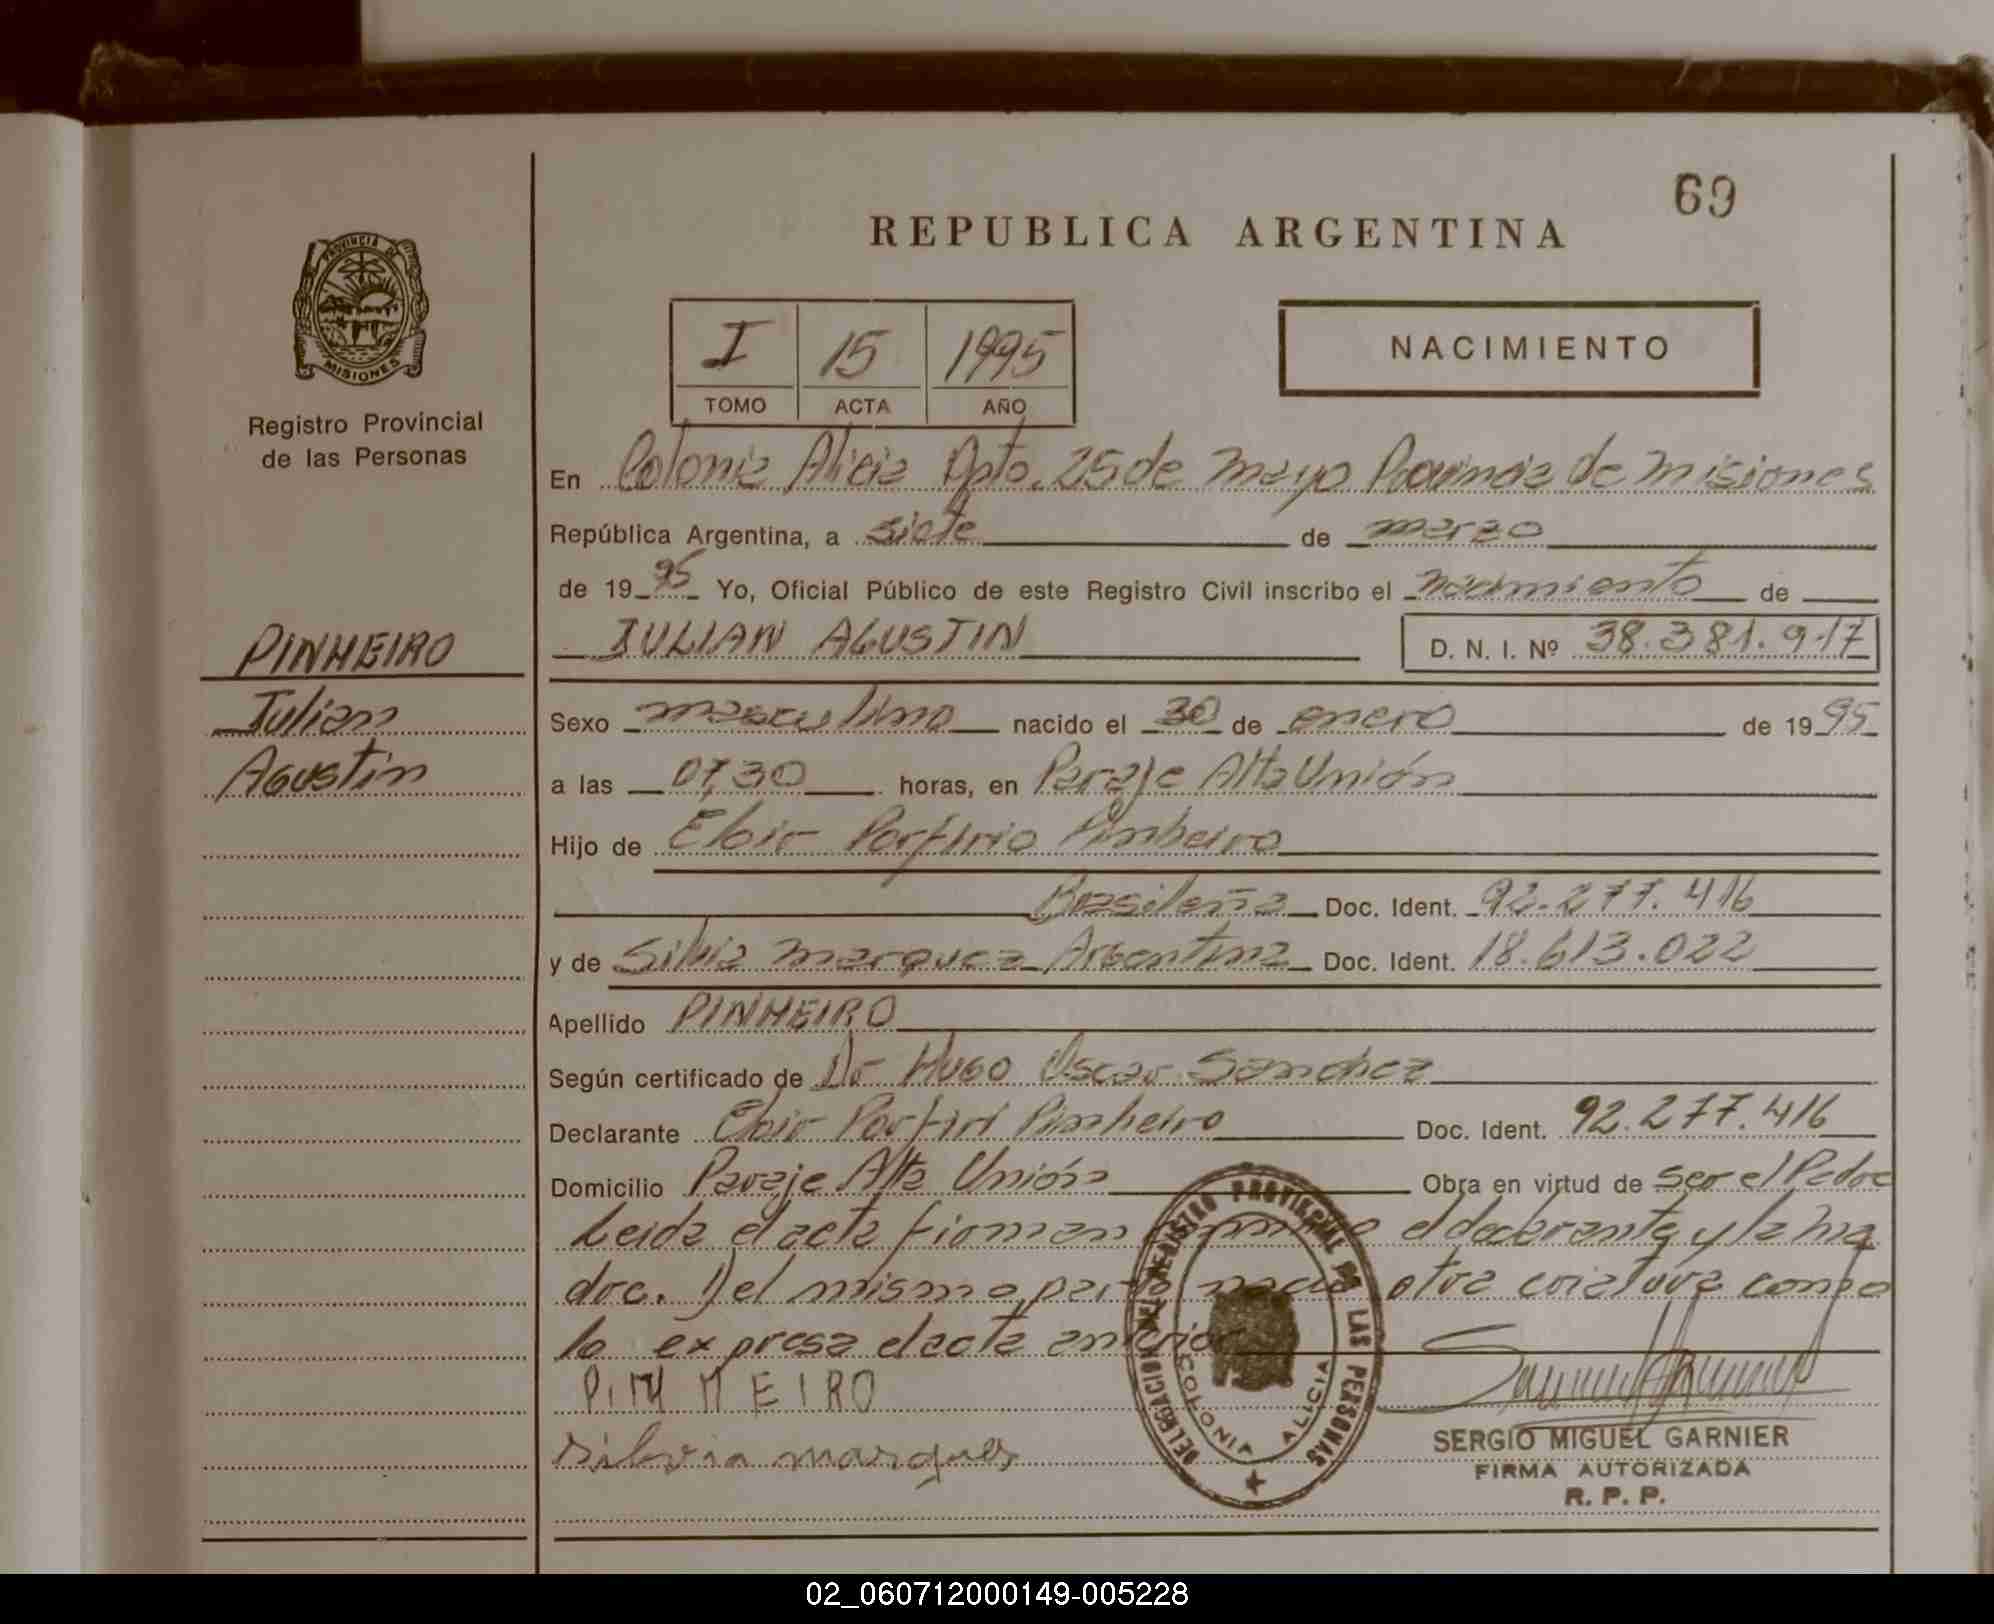 69
REPUBLICA ARGENTINA
PROVINCIA DE MISIONES
Registro Provincial
de las Personas
I 15 1995
TOMO ACTA AÑO
NACIMIENTO
En Colonia Alicia Dpto. 25 de Mayo Provincia de Misiones
República Argentina, a siete de marzo
de 1995 Yo, Oficial Público de este Registro Civil inscribo el nacimiento de
JULIAN AGUSTIN D. N. I. Nº 38.381.917
PINHEIRO
Julian
Agustin
Sexo masculino nacido el 30 de enero de 1995
a las 07,30 horas, en Paraje Alta Unión
Hijo de Eloir Porfirio Pinheiro
Brasileña Doc. Ident. 92.277.416
y de Silvia Marquez Argentina Doc. Ident. 18.613.022
Apellido PINHEIRO
Según certificado de Dr Hugo Oscar Sanchez
Declarante Eloir Porfiri Pinheiro Doc. Ident. 92.277.416
Domicilio Paraje Alta Unión Obra en virtud de ser el Padre
Leida el acta firman el declarante y la ma
dre. Del mismo parto nacio otra criatura como
lo expresa el acta anterior
PINHEIRO
silvia marques
DELEGACION DEL REGISTRO PROVINCIAL DE LAS PERSONAS
COLONIA ALICIA
SERGIO MIGUEL GARNIER
FIRMA AUTORIZADA
R. P. P.
02_060712000149-005228